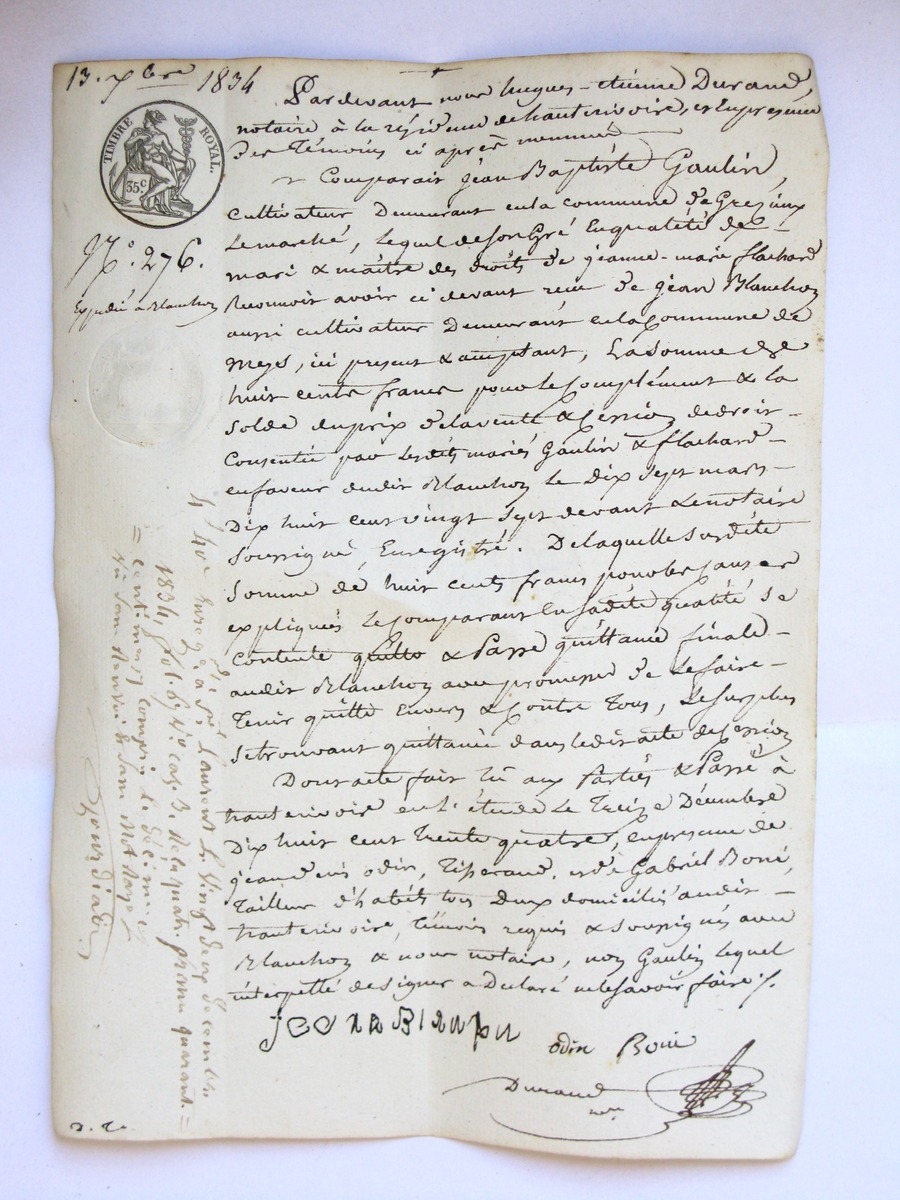 13. xbre 1834
TIMBRE ROYAL.
35c
N.° 276.
Expédié à Blanchon
Pardevant nous hugues-étienne Durand,
notaire à la résidence de hauterivoire, et En presence
Des Témoins ci après nommés
Comparait jean Baptiste Gaulin,
cultivateur Demeurant en la commune de Grezieux
Le marché, Lequel de son Gré En qualité de
mari & maître des droits de jeanne-marie flachard
Reconnoit avoir ci devant reçu de jean Blanchon
aussi cultivateur Demeurant en la Commune de
meys, ici present & acceptant, La Somme de
huit cents francs pour le Complément & la
solde du prix de la vente & Cession de droit
Consentie par Lesdits mariés Gaulin & flachard
en faveur dudit Blanchon Le Dix sept mars
Dix huit cent vingt sept devant Le notaire
soussigné, Enregistré. De laquelle susdite
somme de huit cents francs pour les causes
expliquées Le Comparant En sadite qualité se
contente quitte & Passe quittance finale
audit Blanchon avec promesse de Le faire
Tenir quitte Envers & Contre Tous, Le surplus
se trouvant quittancé dans ledit acte de Cession
Dont acte fait lu aux Parties & Passé à
hauterivoire en L'étude Le Treize Décembre
Dix huit cent Trente quatre, en presence de
jean denis odin, Tisserand, et de Gabriel Boné,
Tailleur d'habits tous Deux domiciliés audit
hauterivoire, Témoins requis & soussignés avec
Blanchon & nous notaire, non Gaulin Lequel
interpellé de signer a Déclaré ne le savoir faire ./.
odin
Durand
Enreg. à St. Laurent Le Vingt deux décembre
1834, fol. 6, v.° cas. 3. Reçu quatre francs quarante
centimes, compris Le décime